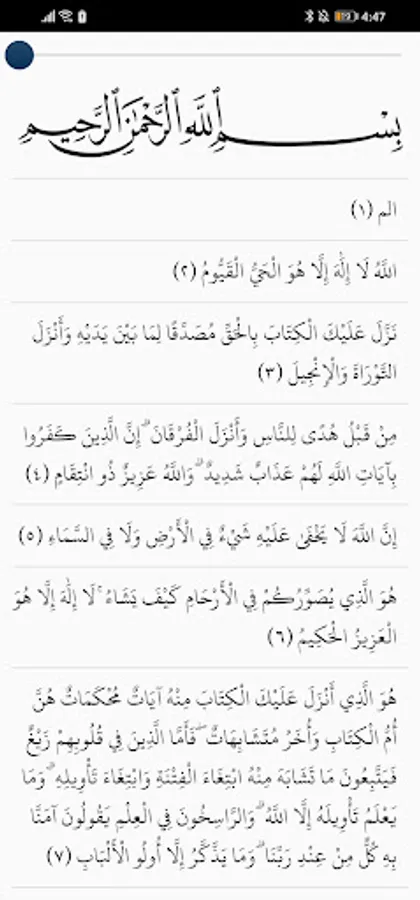 19 4:47
بِسْمِ اللَّهِ الرَّحْمَٰنِ الرَّحِيمِ
الم (١)
اللَّهُ لَا إِلَٰهَ إِلَّا هُوَ الْحَيُّ الْقَيُّومُ (٢)
نَزَّلَ عَلَيْكَ الْكِتَابَ بِالْحَقِّ مُصَدِّقًا لِمَا بَيْنَ يَدَيْهِ وَأَنْزَلَ
التَّوْرَاةَ وَالْإِنْجِيلَ (٣)
مِنْ قَبْلُ هُدًى لِلنَّاسِ وَأَنْزَلَ الْفُرْقَانَ ۗ إِنَّ الَّذِينَ كَفَرُوا
بِآيَاتِ اللَّهِ لَهُمْ عَذَابٌ شَدِيدٌ ۗ وَاللَّهُ عَزِيزٌ ذُو انْتِقَامٍ (٤)
إِنَّ اللَّهَ لَا يَخْفَىٰ عَلَيْهِ شَيْءٌ فِي الْأَرْضِ وَلَا فِي السَّمَاءِ (٥)
هُوَ الَّذِي يُصَوِّرُكُمْ فِي الْأَرْحَامِ كَيْفَ يَشَاءُ ۚ لَا إِلَٰهَ إِلَّا هُوَ
الْعَزِيزُ الْحَكِيمُ (٦)
هُوَ الَّذِي أَنْزَلَ عَلَيْكَ الْكِتَابَ مِنْهُ آيَاتٌ مُحْكَمَاتٌ هُنَّ
أُمُّ الْكِتَابِ وَأُخَرُ مُتَشَابِهَاتٌ ۖ فَأَمَّا الَّذِينَ فِي قُلُوبِهِمْ زَيْغٌ
فَيَتَّبِعُونَ مَا تَشَابَهَ مِنْهُ ابْتِغَاءَ الْفِتْنَةِ وَابْتِغَاءَ تَأْوِيلِهِ ۗ وَمَا
يَعْلَمُ تَأْوِيلَهُ إِلَّا اللَّهُ ۗ وَالرَّاسِخُونَ فِي الْعِلْمِ يَقُولُونَ آمَنَّا
بِهِ كُلٌّ مِنْ عِنْدِ رَبِّنَا ۗ وَمَا يَذَّكَّرُ إِلَّا أُولُو الْأَلْبَابِ (٧)